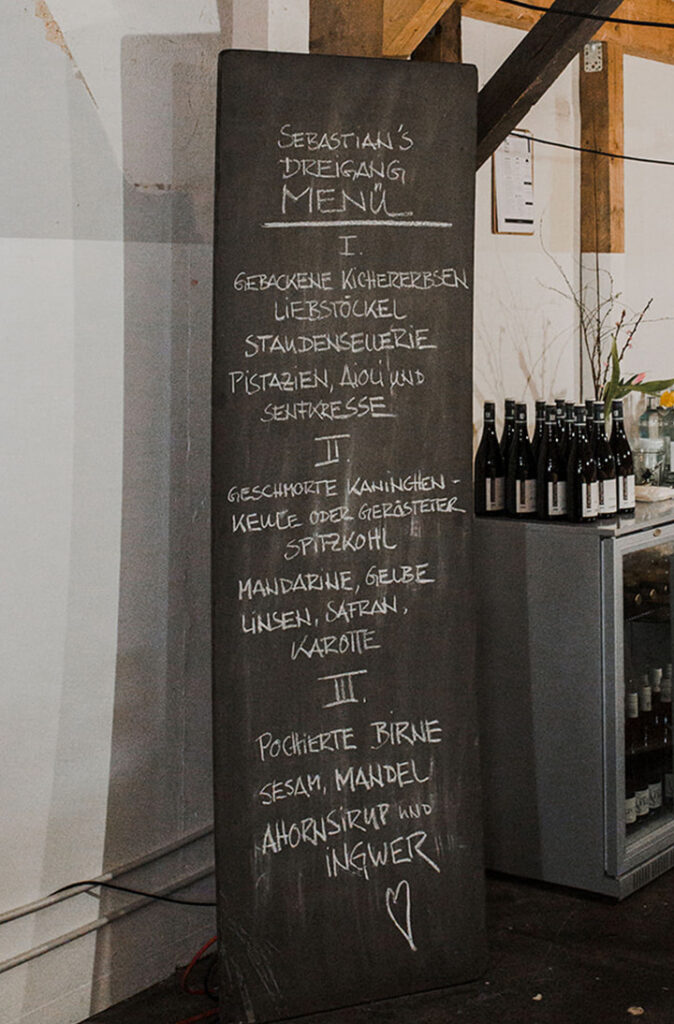 SEBASTIAN'S
DREIGANG
MENÜ
I.
GEBACKENE KICHERERBSEN
LIEBSTÖCKEL
STAUDENSELLERIE
PISTAZIEN, AIOLI UND
SENFKRESSE
II.
GESCHMORTE KANINCHEN-
KEULE ODER GERÖSTETER
SPITZKOHL
MANDARINE, GELBE
LINSEN, SAFRAN,
KAROTTE
III.
POCHIERTE BIRNE
SESAM, MANDEL
AHORNSIRUP UND
INGWER